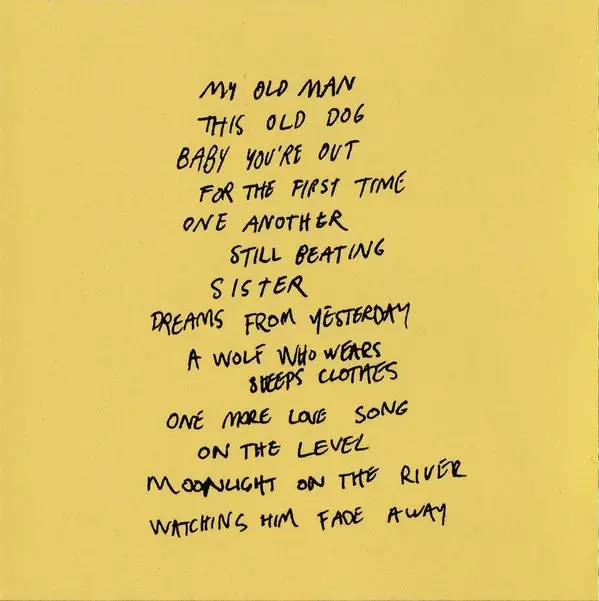 MY OLD MAN
THIS OLD DOG
BABY YOU'RE OUT
FOR THE FIRST TIME
ONE ANOTHER
STILL BEATING
SISTER
DREAMS FROM YESTERDAY
A WOLF WHO WEARS
SHEEPS CLOTHES
ONE MORE LOVE SONG
ON THE LEVEL
MOONLIGHT ON THE RIVER
WATCHING HIM FADE AWAY